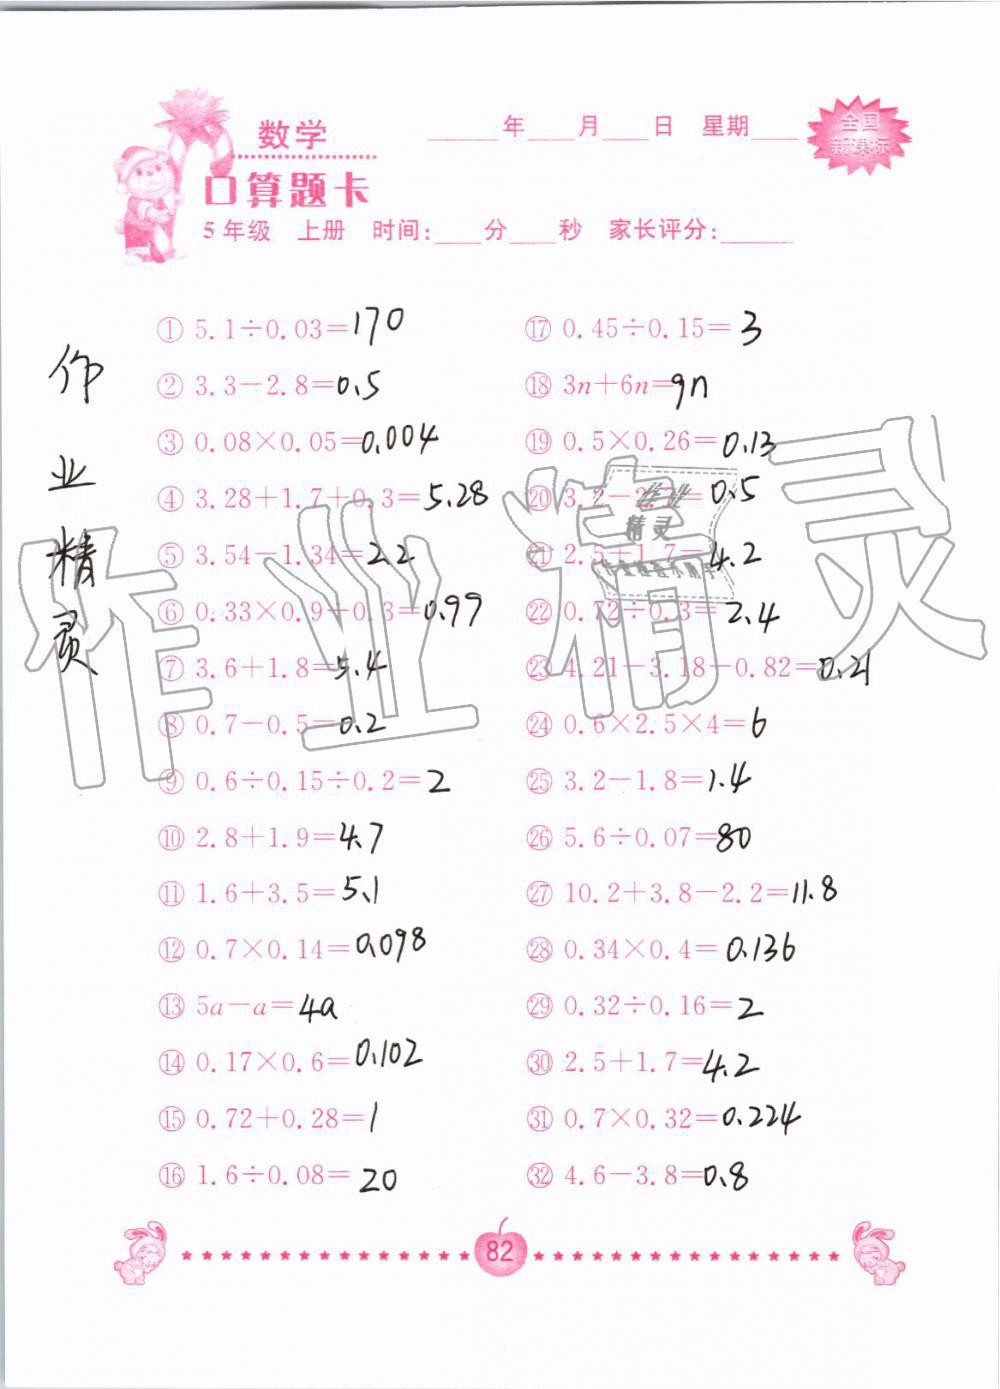 数学
____年____月____日 星期____
全国
新课标
口算题卡
5年级 上册 时间:____分____秒 家长评分:______
① 5.1÷0.03=170
② 3.3-2.8=0.5
③ 0.08×0.05=0.004
④ 3.28+1.7+0.3=5.28
⑤ 3.54-1.34=2.2
⑥ 0.33×0.9÷0.3=0.99
⑦ 3.6+1.8=5.4
⑧ 0.7-0.5=0.2
⑨ 0.6÷0.15÷0.2=2
⑩ 2.8+1.9=4.7
⑪ 1.6+3.5=5.1
⑫ 0.7×0.14=0.098
⑬ 5a-a=4a
⑭ 0.17×0.6=0.102
⑮ 0.72+0.28=1
⑯ 1.6÷0.08=20
⑰ 0.45÷0.15=3
⑱ 3n+6n=9n
⑲ 0.5×0.26=0.13
⑳ 3.2-2.7=0.5
㉑ 2.5+1.7=4.2
㉒ 0.72÷0.3=2.4
㉓ 4.21-3.18-0.82=0.21
㉔ 0.6×2.5×4=6
㉕ 3.2-1.8=1.4
㉖ 5.6÷0.07=80
㉗ 10.2+3.8-2.2=11.8
㉘ 0.34×0.4=0.136
㉙ 0.32÷0.16=2
㉚ 2.5+1.7=4.2
㉛ 0.7×0.32=0.224
㉜ 4.6-3.8=0.8
作业精灵
作业精灵
作业
精灵
82